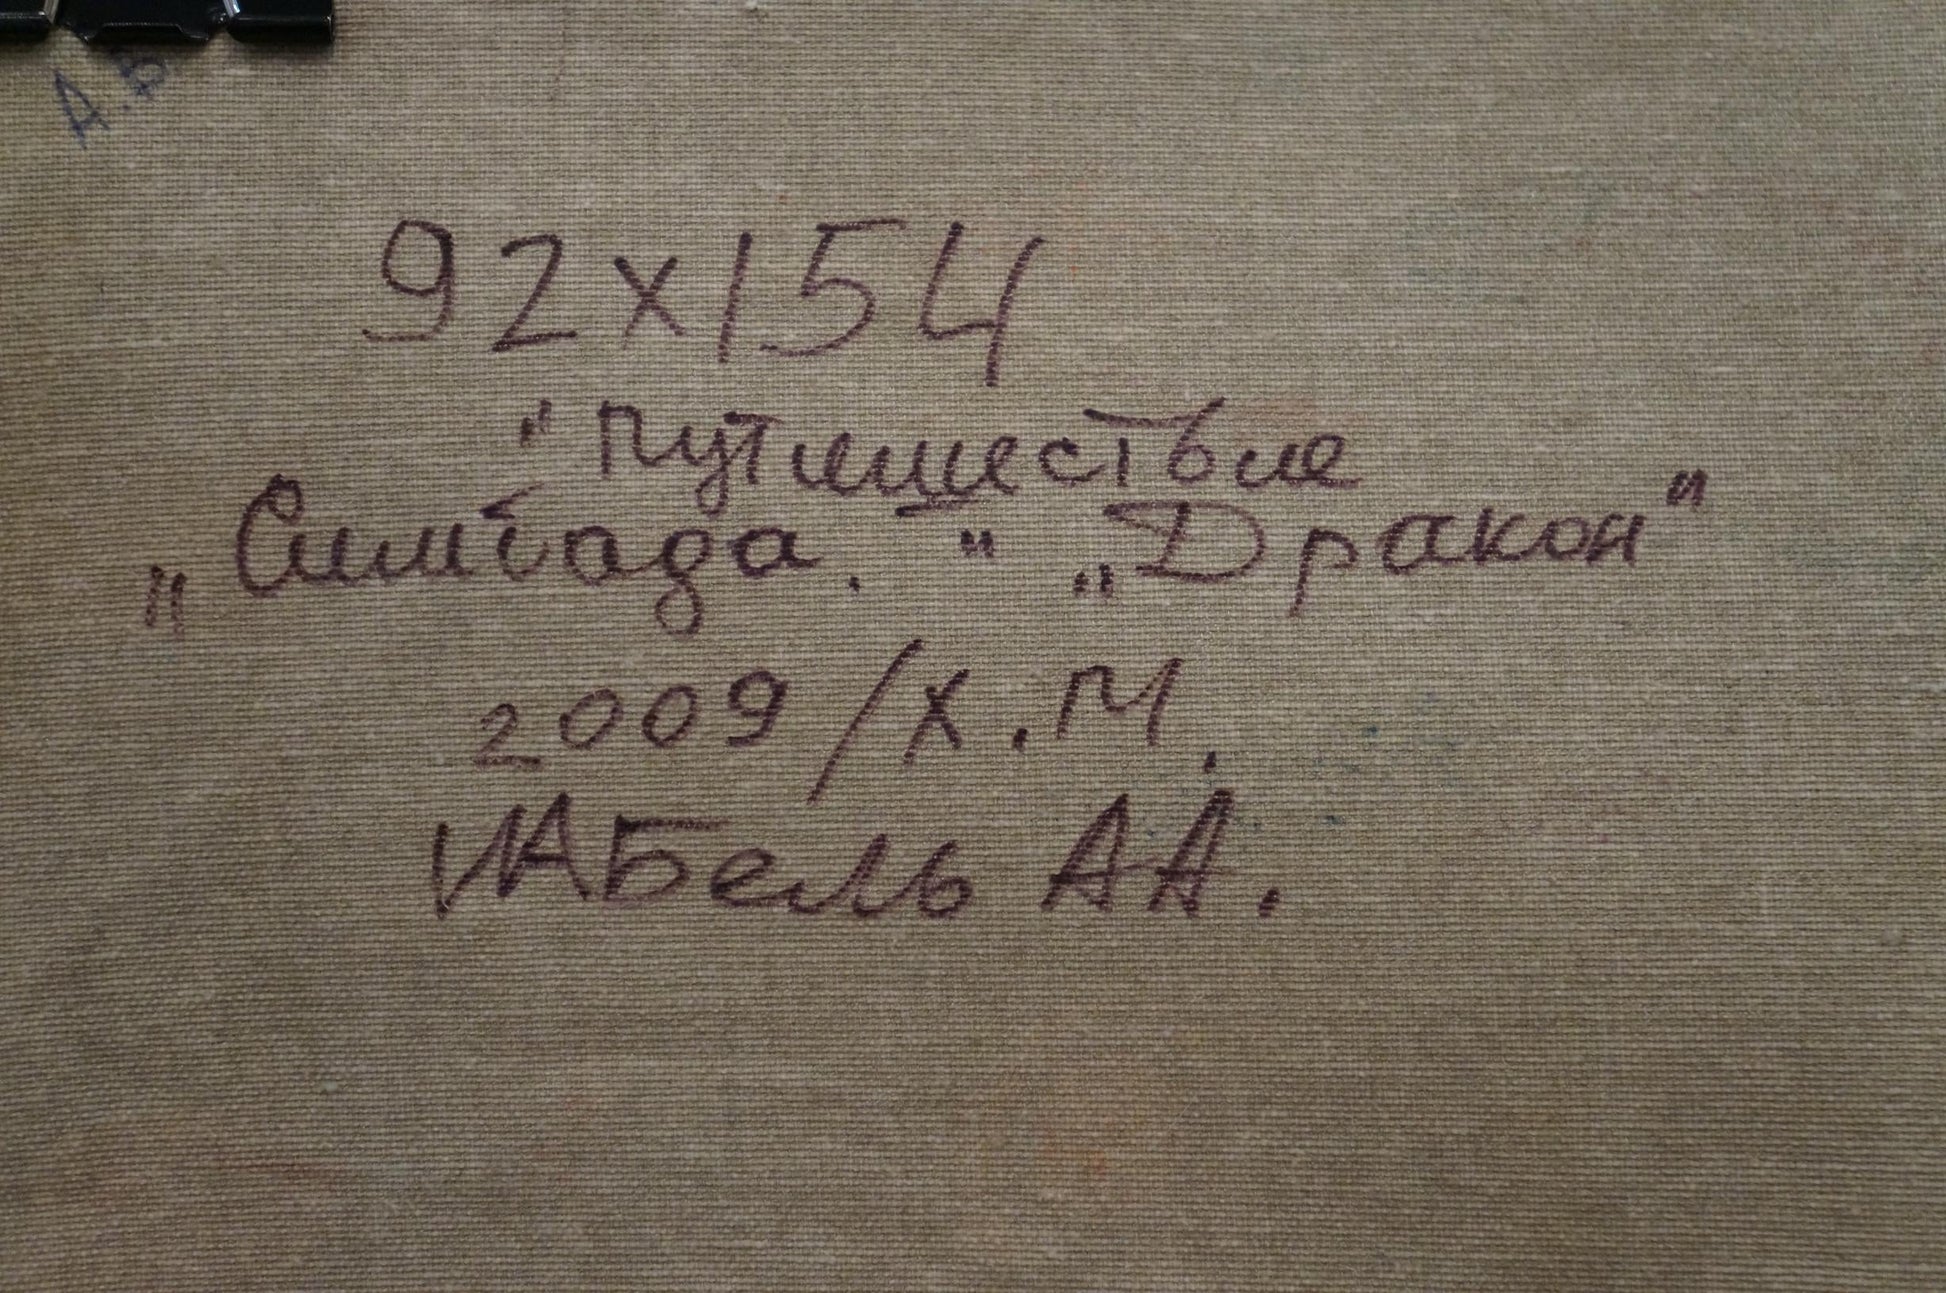 А.Б
92х154
"Путешествие
„Симбада." „Дракон"
2009/х.м.
ИАБель АА.